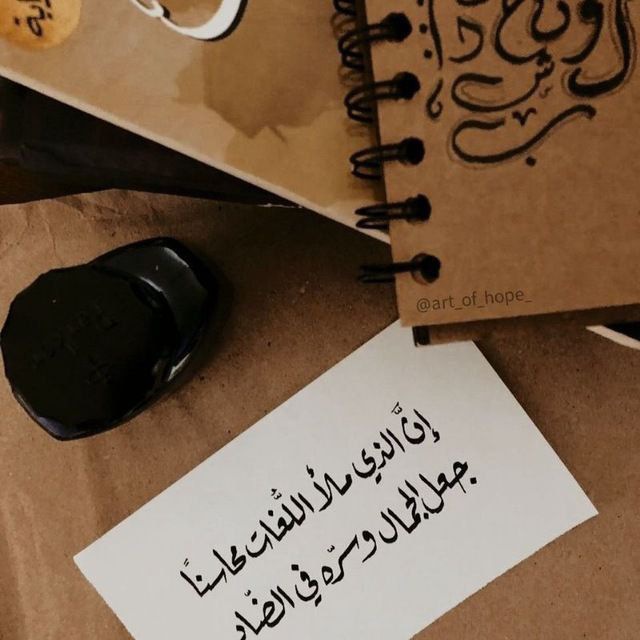 @art_of_hope_
إنَّ الذي ملأ اللُّغات محاسنًا
جعل الجمال وسرّه في الضّاد